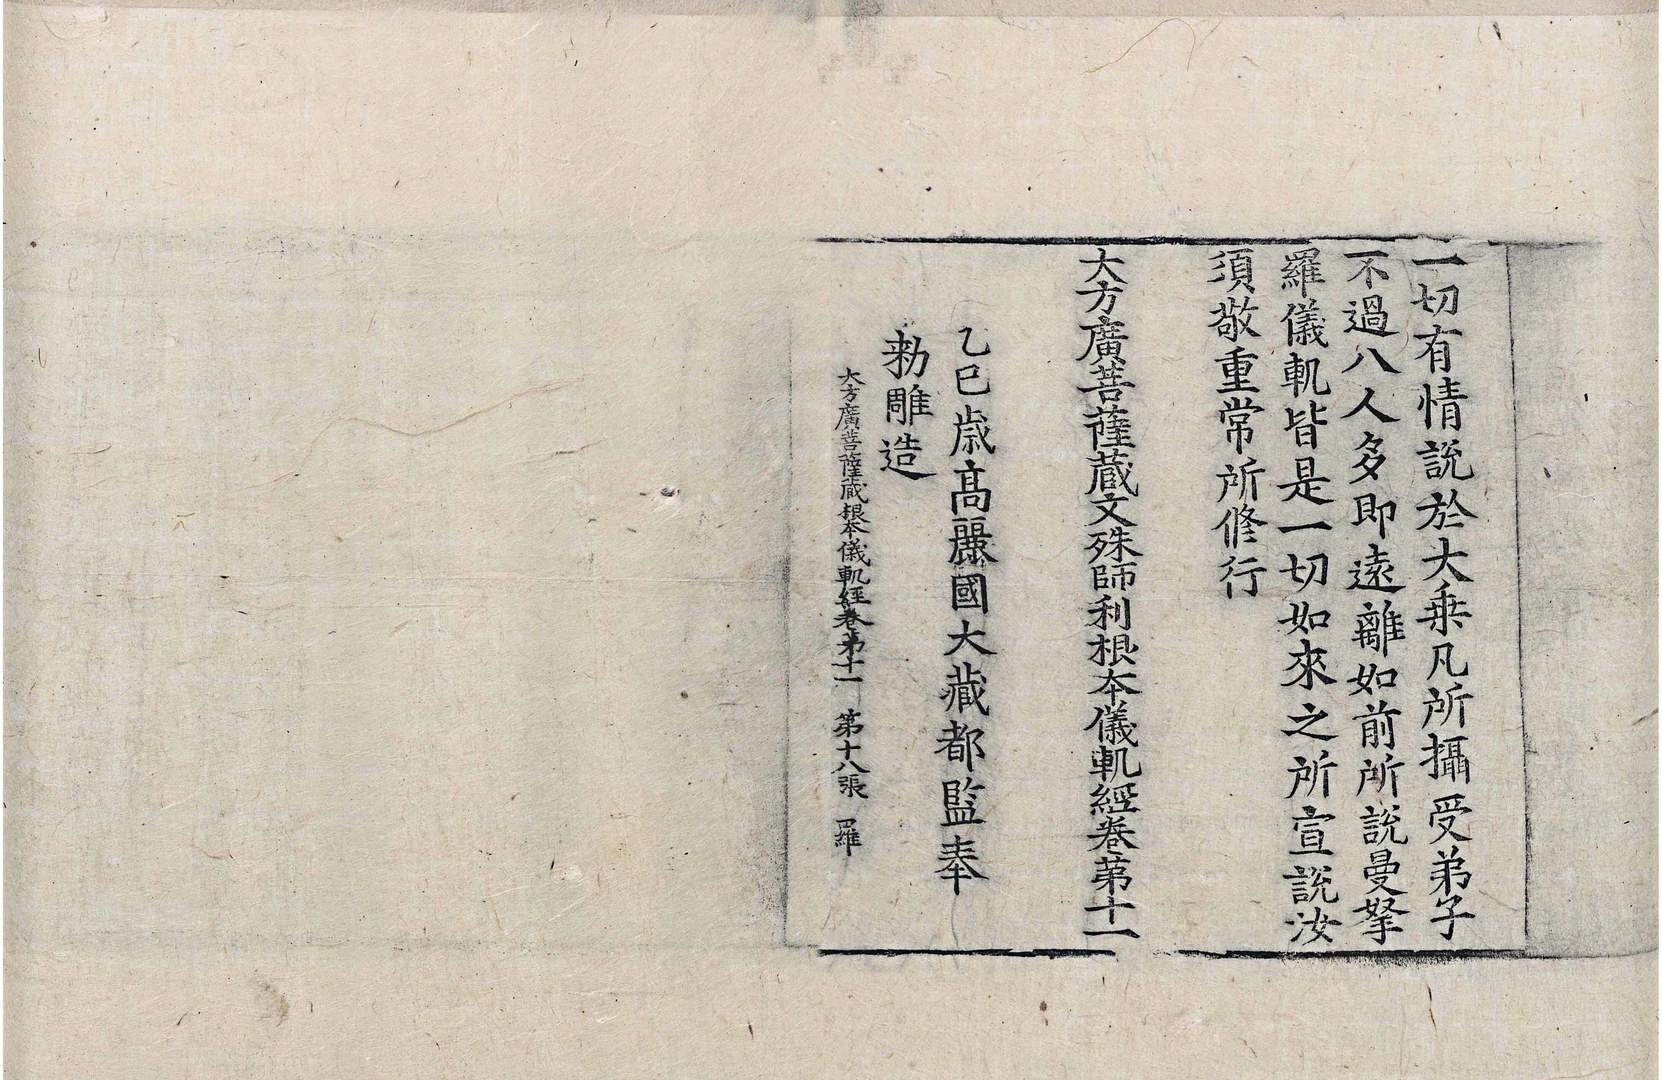 一切有情說於大乘凡所攝受弟子
不過八人多即遠離如前所說曼拏
羅儀軌皆是一切如來之所宣說汝
須敬重常所修行
大方廣菩薩藏文殊師利根本儀軌經卷第十一
乙巳歲高麗國大藏都監奉
勑雕造
大方廣菩薩藏根本儀軌經卷第十一 第十八張 羅